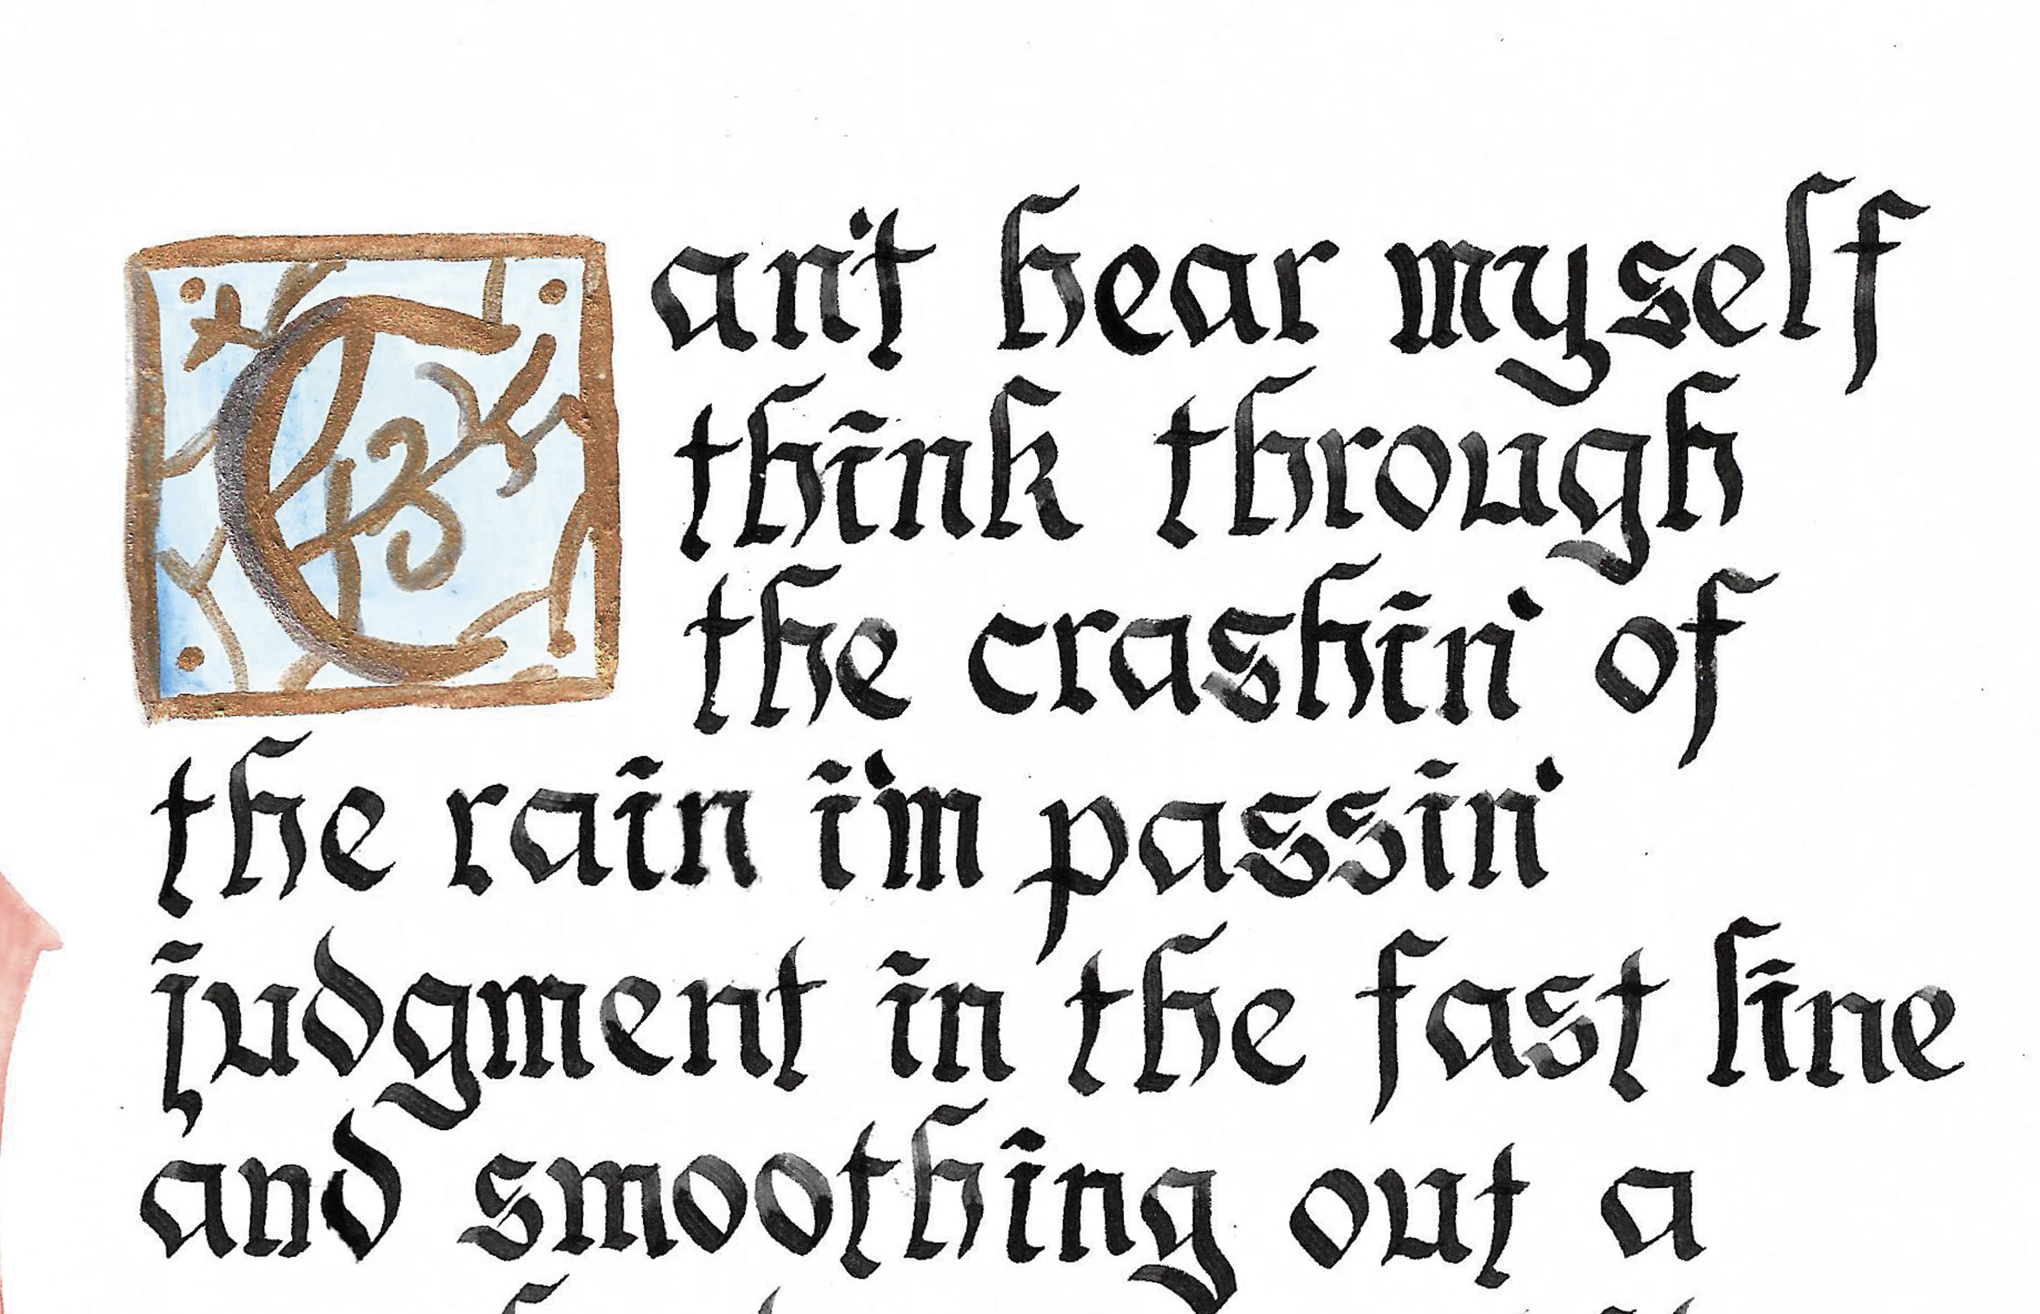 Can't hear myself
think through
the crashin' of
the rain i'm passin'
judgment in the fast line
and smoothing out a